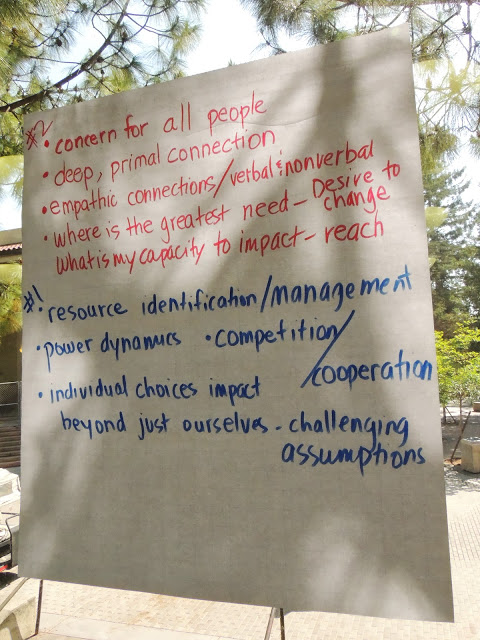 *?• concern for all people
• deep, primal connection
• empathic connections/verbal & nonverbal
• where is the greatest need – Desire to change
what is my capacity to impact – reach
*!• resource identification/management
• power dynamics • competition/cooperation
• individual choices impact
beyond just ourselves - challenging
assumptions